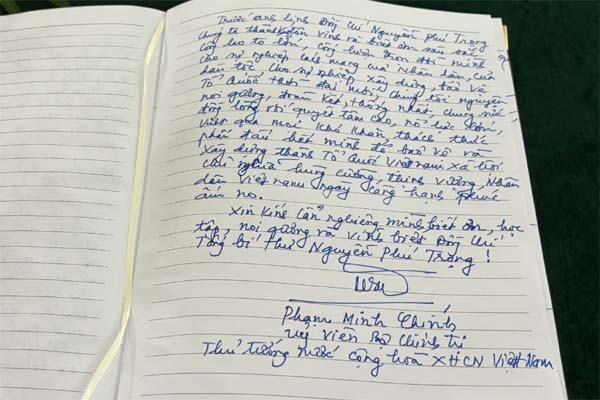 Trước anh linh Đồng chí Nguyễn Phú Trọng
chúng ta thành kính tôn vinh và biết ơn sâu sắc
công lao to lớn, cống hiến trọn đời mình
cho sự nghiệp cách mạng của nhân dân, của
dân tộc cho sự nghiệp xây dựng, bảo vệ
Tổ Quốc thời đại mới, chúng tôi nguyện
noi gương, đoàn kết, thống nhất, chung sức
đồng lòng với quyết tâm cao, nỗ lực lớn,
vượt qua mọi khó khăn, thách thức
phấn đấu hết mình để bảo vệ và
xây dựng thành Tổ Quốc Việt nam xã hội
chủ nghĩa hùng cường, thịnh vượng, Nhân
dân Việt nam ngày càng hạnh phúc
ấm no.
Xin kính cẩn nghiêng mình biết ơn, học
tập, noi gương và vĩnh biệt Đồng chí
Tổng bí thư Nguyễn Phú Trọng!
Phạm Minh Chính
Uỷ viên Bộ Chính trị
Thủ tướng nước cộng hoà XHCN Việt Nam